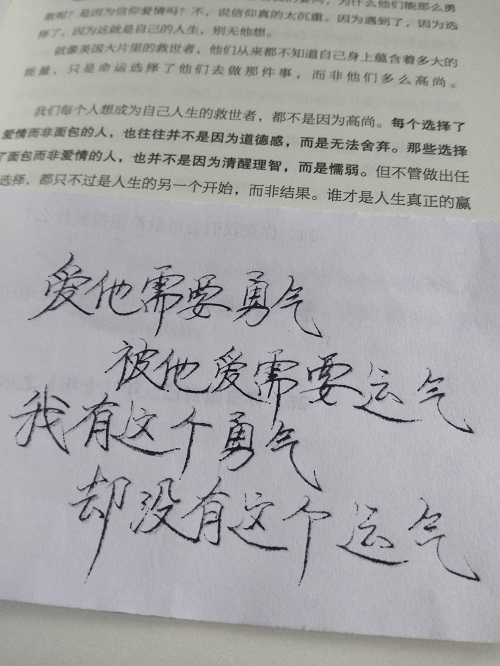 敢呢？是因为信仰爱情吗？不，说信仰真的太沉重。因为遇到了，因为选
择了，因为这就是自己的人生，别无他想。
就像美国大片里的救世者，他们从来都不知道自己身上蕴含着多大的
能量，只是命运选择了他们去做那件事，而非他们多么高尚。
我们每个人想成为自己人生的救世者，都不是因为高尚。每个选择了
爱情而非面包的人，也往往并不是因为道德感，而是无法舍弃。那些选择
了面包而非爱情的人，也并不是因为清醒理智，而是懦弱。但不管做出任
选择，都只不过是人生的另一个开始，而非结果。谁才是人生真正的赢
爱他需要勇气
被他爱需要运气
我有这个勇气
却没有这个运气